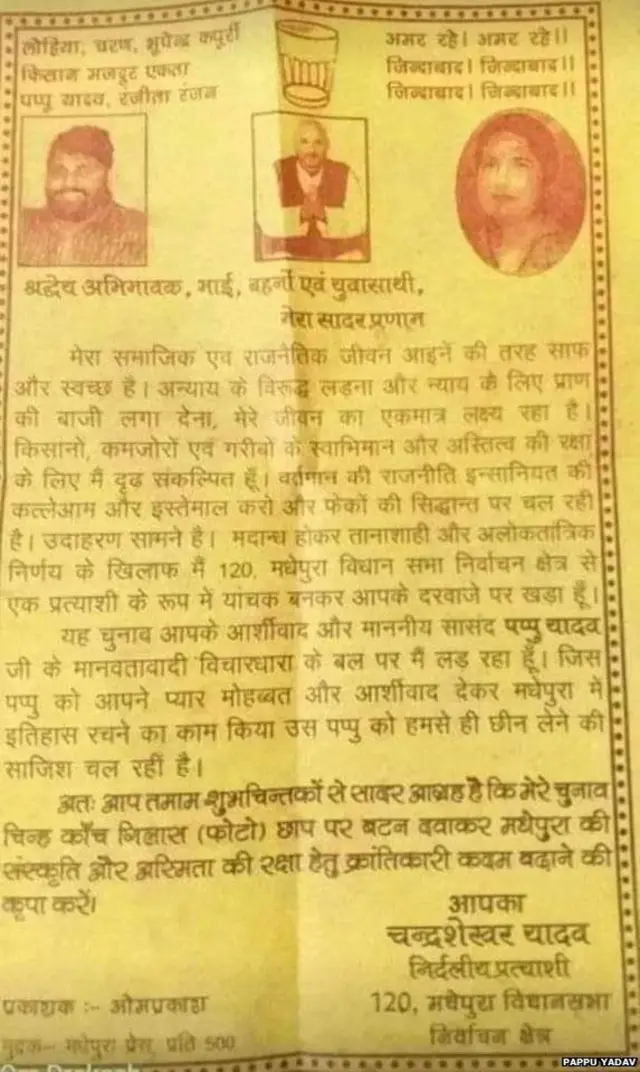 लोहिया, चरण, भूपेन्द्र कपूर्री
किसान मजदूर एकता
पप्पू यादव, रंजीता रंजन
अमर रहे। अमर रहे।।
जिन्दाबाद। जिन्दाबाद।।
जिन्दाबाद। जिन्दाबाद।।
श्रद्धेय अभिभावक, भाई, बहनों एवं युवासाथी,
मेरा सादर प्रणाम
मेरा समाजिक एवं राजनैतिक जीवन आइनें की तरह साफ
और स्वच्छ है। अन्याय के विरूद्ध लड़ना और न्याय के लिए प्राण
की बाजी लगा देना, मेरे जीवन का एकमात्र लक्ष्य रहा है।
किसानो, कमजोरों एवं गरीबो के स्वाभिमान और अस्तित्व की रक्षा
के लिए मैं दृढ संकल्पित हूँ। वर्तमान की राजनीति इन्सानियत की
कत्लेआम और इस्तेमाल करो और फेकों की सिद्धान्त पर चल रही
है। उदाहरण सामने है। मदान्ध होकर तानाशाही और अलोकतांत्रिक
निर्णय के खिलाफ मैं 120, मधेपुरा विधान सभा निर्वाचन क्षेत्र से
एक प्रत्याशी के रूप में यांचक बनकर आपके दरवाजे पर खड़ा हूँ।
यह चुनाव आपके आर्शीवाद और माननीय सासंद पप्पु यादव
जी के मानवतावादी विचारधारा के बल पर मैं लड़ रहा हूँ। जिस
पप्पु को आपने प्यार मोहब्बत और आर्शीवाद देकर मधेपुरा में
इतिहास रचने का काम किया उस पप्पु को हमसे ही छीन लेने की
साजिश चल रहीं है।
अतः आप तमाम शुभचिन्तकों से सादर आग्रह है कि मेरे चुनाव
चिन्ह काँच गिलास (फोटो) छाप पर बटन दवाकर मधेपुरा की
संस्कृति और अस्मिता की रक्षा हेतु क्रांतिकारी कदम बढाने की
कृपा करें।
आपका
चन्द्रशेखर यादव
निर्दलीय प्रत्याशी
120, मधेपुरा विधानसभा
निर्वाचन क्षेत्र
प्रकाशक :- ओमप्रकाश
मुद्रक-- मधेपुरा प्रेस, प्रति 500
PAPPU YADAV